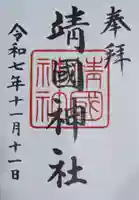 奉拝
靖國神社
令和七年十一月十一日